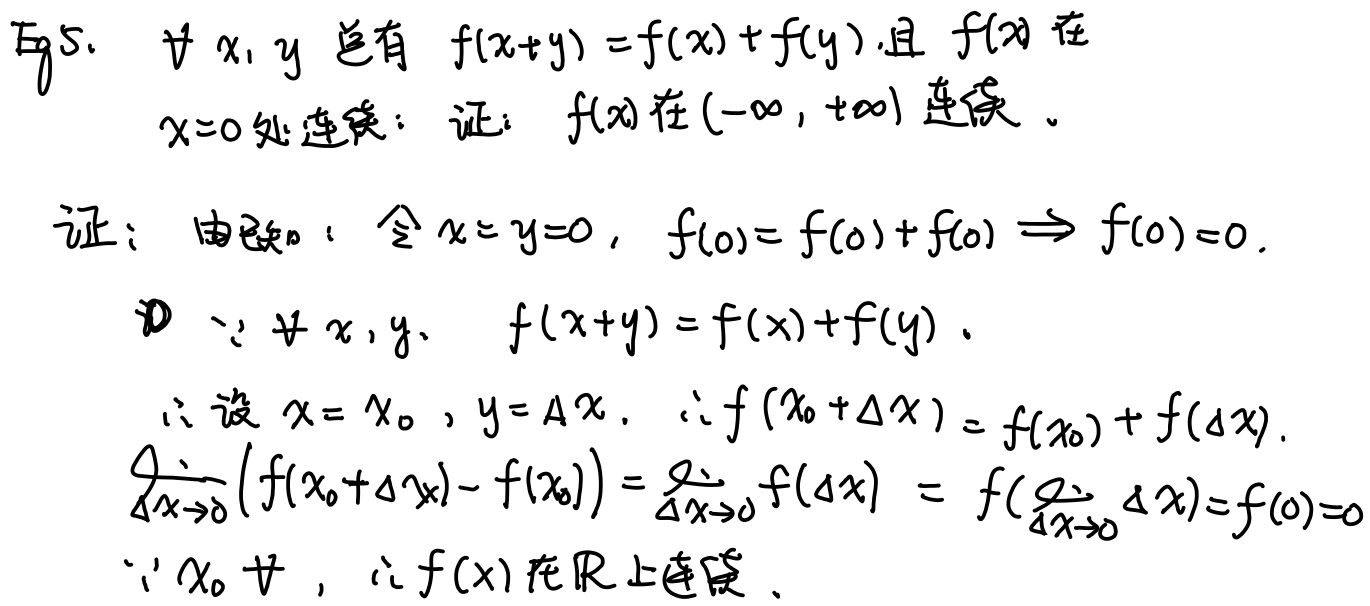 Eg5. ∀ x, y 总有 f(x+y) = f(x) + f(y). 且 f(x) 在
x=0 处连续: 证: f(x) 在 (-∞, +∞) 连续.
证: 由已知: 令 x = y=0, f(0) = f(0) + f(0) ⇒ f(0) = 0.
∵ ∀ x, y. f(x+y) = f(x) + f(y).
∴ 设 x = x₀, y = Δx. ∴ f(x₀ + Δx) = f(x₀) + f(Δx).
lim Δx→0 (f(x₀+Δx) - f(x₀)) = lim Δx→0 f(Δx) = f(lim Δx→0 Δx) = f(0) = 0
∵ x₀ ∀, ∴ f(x) 在 ℝ 上连续.